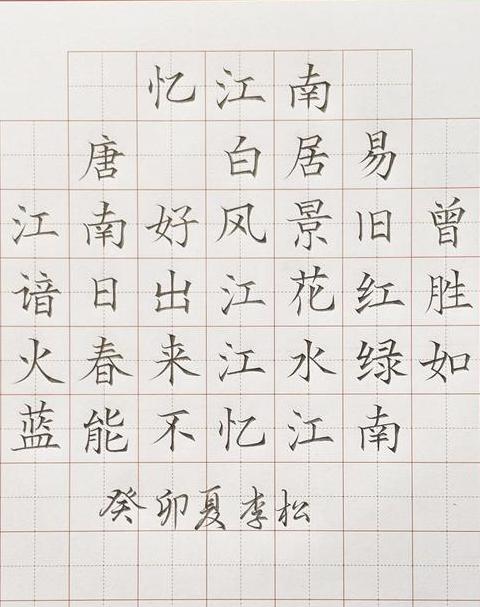 忆江南
唐 白居易
江南好风景旧曾
谙日出江花红胜
火春来江水绿如
蓝能不忆江南
癸卯夏李松